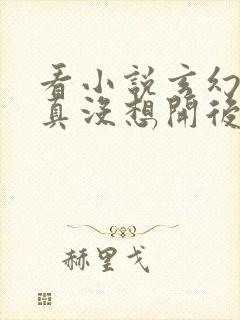 看小說玄幻
真沒想開後
赫里戈